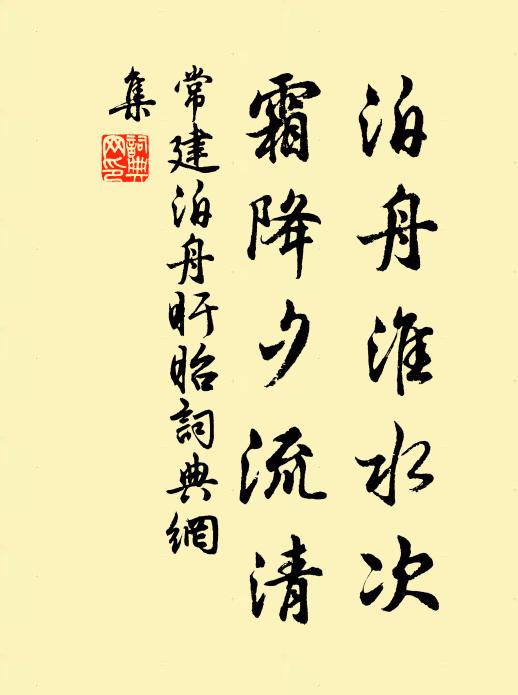 泊舟淮水次
霜降夕流清
常建泊舟盱眙詞典網
集
詞典
网印